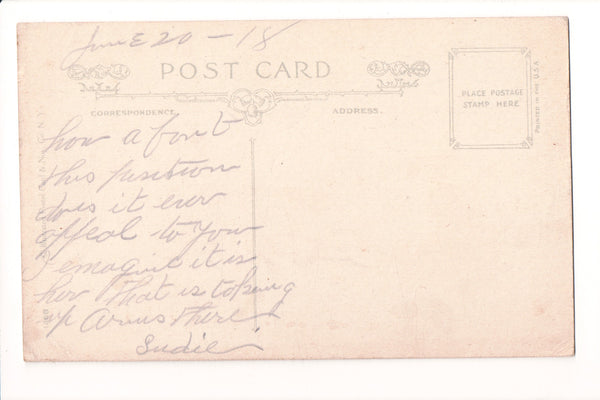 June 20 - 18
POST CARD
CORRESPONDENCE
ADDRESS.
PLACE POSTAGE
STAMP HERE
PRINTED IN THE U.S.A.
how a bout
this position
does it ever
appeal to you
I emagine it is
her that is taking
up arms there
Sudie